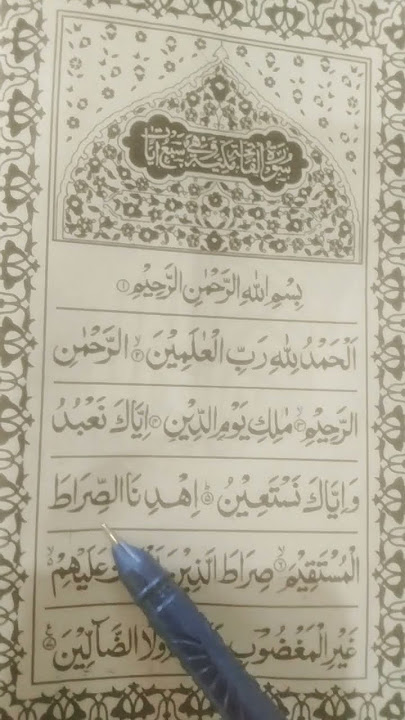 سورة الفاتحة مكية وهي سبع آيات
بِسْمِ اللهِ الرَّحْمٰنِ الرَّحِيْمِ ۝١
اَلْحَمْدُ لِلّٰهِ رَبِّ الْعٰلَمِيْنَ ۙ۝٢ الرَّحْمٰنِ
الرَّحِيْمِ ۙ۝٣ مٰلِكِ يَوْمِ الدِّيْنِ ۝٤ اِيَّاكَ نَعْبُدُ
وَاِيَّاكَ نَسْتَعِيْنُ ۝٥ اِهْدِنَا الصِّرَاطَ
الْمُسْتَقِيْمَ ۙ۝٦ صِرَاطَ الَّذِيْنَ عَلَيْهِمْ
غَيْرِ الْمَغْضُوْبِ وَلَا الضَّآلِّيْنَ